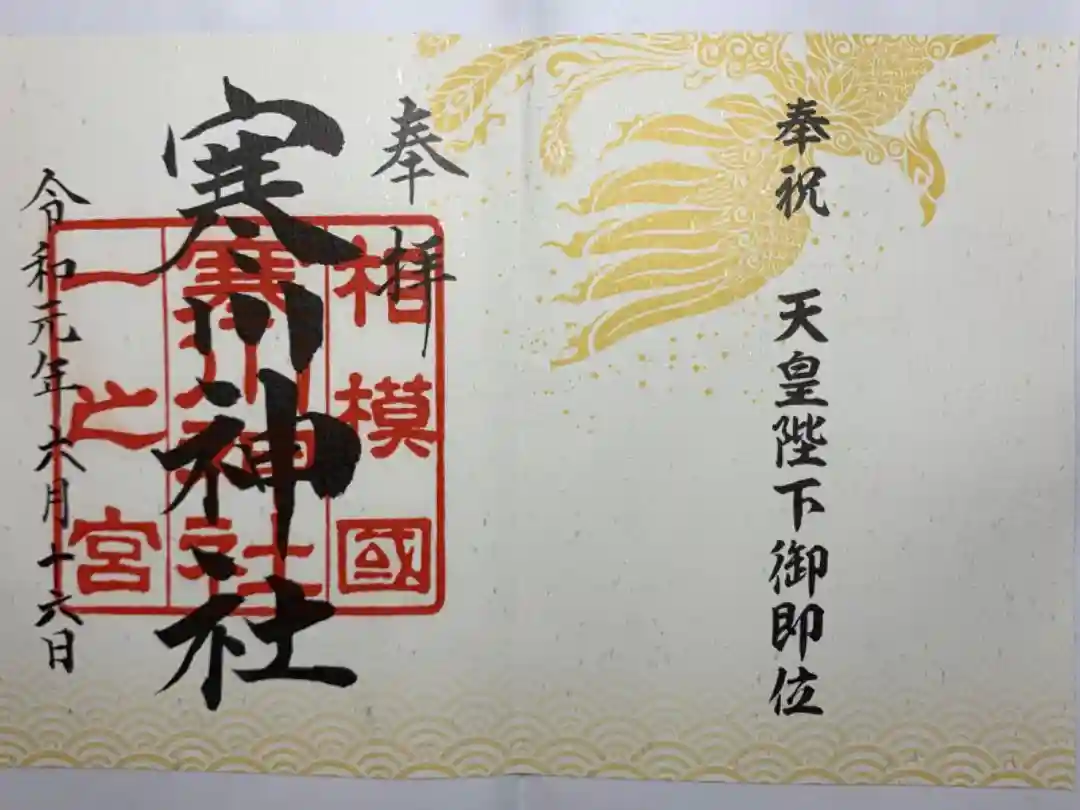 奉祝 天皇陛下御即位
奉拝
寒川神社
令和元年六月十六日
相模國
寒川神社
一之宮